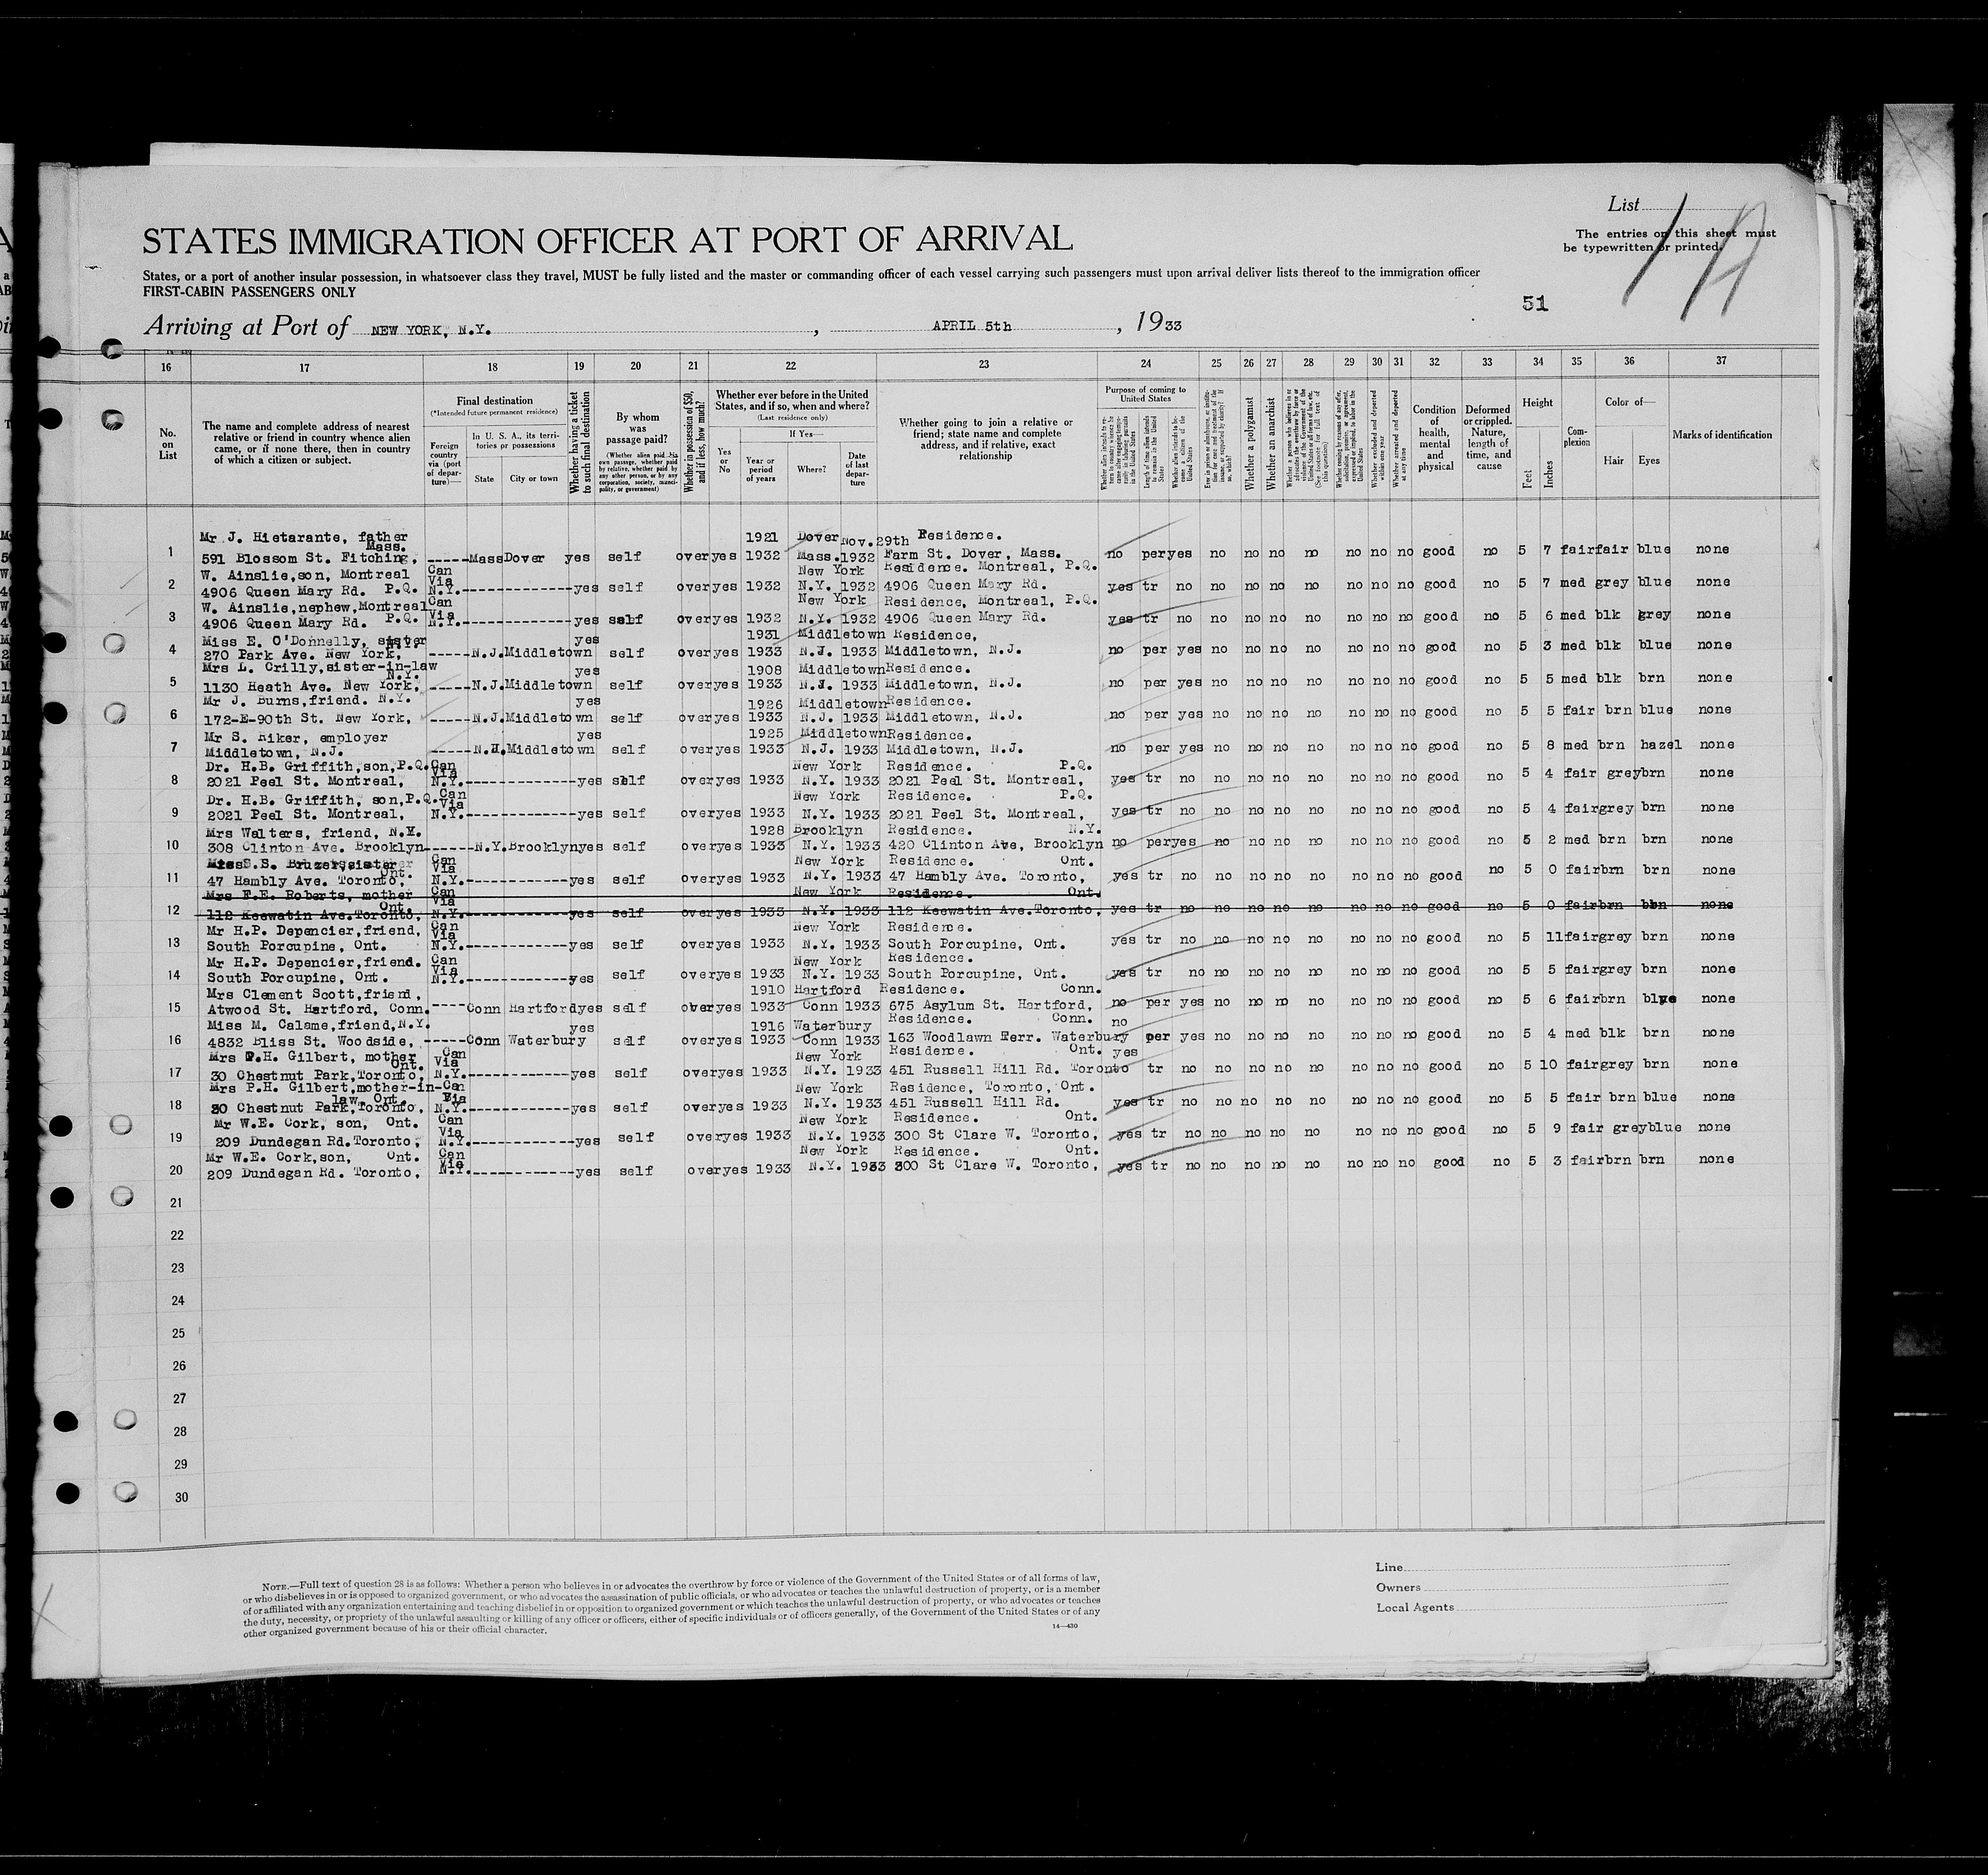 List
1A
The entries on this sheet must
be typewritten or printed.
STATES IMMIGRATION OFFICER AT PORT OF ARRIVAL
States, or a port of another insular possession, in whatsoever class they travel, MUST be fully listed and the master or commanding officer of each vessel carrying such passengers must upon arrival deliver lists thereof to the immigration officer
FIRST-CABIN PASSENGERS ONLY
51
Arriving at Port of NEW YORK, N.Y. , APRIL 5th , 1933
16 17 18 19 20 21 22 23 24 25 26 27 28 29 30 31 32 33 34 35 36 37
No. on List
The name and complete address of nearest relative or friend in country whence alien came, or if none there, then in country of which a citizen or subject.
Final destination
(*Intended future permanent residence)
Foreign country via (port of departure)—
In U. S. A., its territories or possessions
State
City or town
Whether having a ticket to such final destination
By whom was passage paid?
(Whether alien paid his own passage, whether paid by relative, whether paid by any other person, or by any corporation, society, municipality, or government)
Whether in possession of $50, and if less, how much?
Whether ever before in the United States, and if so, when and where?
(Last residence only)
Yes or No
If Yes—
Year or period of years
Where?
Date of last departure
Whether going to join a relative or friend; state name and complete address, and if relative, exact relationship
Purpose of coming to United States
Length of time alien intends to remain in the United States
Whether a polygamist
Whether an anarchist
Whether excluded and deported within one year
Whether arrested and deported at any time
Condition of health, mental and physical
Deformed or crippled. Nature, length of time, and cause
Height
Feet
Inches
Complexion
Color of—
Hair
Eyes
Marks of identification
Mr J. Hietarante, father 1921 Dover Nov.29th Residence.
Mass.
1 591 Blossom St. Fitching, -----Mass Dover yes self over yes 1932 Mass. 1932 Farm St. Dover, Mass. no per yes no no no no no no no good no 5 7 fair fair blue none
W. Ainslie,son, Montreal Can Via New York Residence. Montreal, P.Q.
2 4906 Queen Mary Rd. P.Q. N.Y.-------------yes self over yes 1932 N.Y. 1932 4906 Queen Mary Rd. yes tr no no no no no no no no good no 5 7 med grey blue none
W. Ainslie,nephew,Montreal Can Via New York Residence, Montreal, P.Q.
3 4906 Queen Mary Rd. P.Q. N.Y.-------------yes self over yes 1932 N.Y. 1932 4906 Queen Mary Rd. yes tr no no no no no no no no good no 5 6 med blk grey none
Miss E. O'Donnelly, sister yes 1931 Middletown Residence,
N.Y.
4 270 Park Ave. New York, -----N.J.Middletown self over yes 1933 N.J. 1933 Middletown, N.J. no per yes no no no no no no no good no 5 3 med blk blue none
Mrs L. Crilly,sister-in-law yes 1908 Middletown Residence.
N.Y.
5 1130 Heath Ave. New York, -----N.J.Middletown self over yes 1933 N.J. 1933 Middletown, N.J. no per yes no no no no no no no good no 5 5 med blk brn none
Mr J. Burns,friend. N.Y. yes 1926 Middletown Residence.
6 172-E-90th St. New York, -----N.J.Middletown self over yes 1933 N.J. 1933 Middletown, N.J. no per yes no no no no no no no good no 5 5 fair brn blue none
Mr S. Riker, employer yes 1925 Middletown Residence.
7 Middletown, N.J. -----N.J.Middletown self over yes 1933 N.J. 1933 Middletown, N.J. no per yes no no no no no no no good no 5 8 med brn hazel none
Dr. H.B. Griffith,son,P.Q. Can Via New York Residence. P.Q.
8 2021 Peel St. Montreal, N.Y.-------------yes self over yes 1933 N.Y. 1933 2021 Peel St. Montreal, yes tr no no no no no no no no good no 5 4 fair grey brn none
Dr. H.B. Griffith, son,P.Q. Can Via New York Residence. P.Q.
9 2021 Peel St. Montreal, N.Y.-------------yes self over yes 1933 N.Y. 1933 2021 Peel St. Montreal, yes tr no no no no no no no no good no 5 4 fair grey brn none
Mrs Walters, friend, N.Y. 1928 Brooklyn Residence. N.Y.
10 308 Clinton Ave. Brooklyn------N.Y.Brooklyn yes self over yes 1933 N.Y. 1933 420 Clinton Ave, Brooklyn no per yes no no no no no no no good no 5 2 med brn brn none
Miss S. sister Can Via New York Residence. Ont.
Ont.
11 47 Hambly Ave. Toronto, N.Y.-------------yes self over yes 1933 N.Y. 1933 47 Hambly Ave. Toronto, yes tr no no no no no no no no good no 5 0 fair brn brn none
Mrs F.E. Roberts, mother Can Via New York Residence. Ont.
Ont.
12 112 Keewatin Ave.Toronto, N.Y.-------------yes self over yes 1933 N.Y. 1933 112 Keewatin Ave.Toronto, yes tr no no no no no no no no good no 5 0 fair brn brn none
Mr H.P. Depencier,friend, Can Via New York Residence.
13 South Porcupine, Ont. N.Y.-------------yes self over yes 1933 N.Y. 1933 South Porcupine, Ont. yes tr no no no no no no no no good no 5 11 fair grey brn none
Mr H.P. Depencier,friend. Can Via New York Residence.
14 South Porcupine, Ont. N.Y.-------------yes self over yes 1933 N.Y. 1933 South Porcupine, Ont. yes tr no no no no no no no no good no 5 5 fair grey brn none
Mrs Clement Scott,friend, 1910 Hartford Residence. Conn.
15 Atwood St. Hartford, Conn. ----Conn Hartford yes self over yes 1933 Conn 1933 675 Asylum St. Hartford, no per yes no no no no no no no good no 5 6 fair brn blue none
Miss M. Calame,friend,N.Y. yes 1916 Waterbury Residence. Conn. no
16 4832 Bliss St. Woodside, -----Conn Waterbury self over yes 1933 Conn 1933 163 Woodlawn Terr. Waterbury per yes no no no no no no no good no 5 4 med blk brn none
Mrs P.H. Gilbert, mother Can Via New York Residence. Ont. yes
Ont.
17 30 Chestnut Park,Toronto, N.Y.-------------yes self over yes 1933 N.Y. 1933 451 Russell Hill Rd. Toronto tr no no no no no no no no good no 5 10 fair grey brn none
Mrs P.H. Gilbert,mother-in- Can Via New York Residence, Toronto, Ont.
law, Ont.
18 30 Chestnut Park,Toronto, N.Y.-------------yes self over yes 1933 N.Y. 1933 451 Russell Hill Rd. yes tr no no no no no no no no good no 5 5 fair brn blue none
Mr W.E. Cork, son, Ont. Can Via New York Residence. Ont.
19 209 Dundegan Rd.Toronto, N.Y.-------------yes self over yes 1933 N.Y. 1933 300 St Clare W. Toronto, yes tr no no no no no no no no good no 5 9 fair grey blue none
Mr W.E. Cork,son, Ont. Can Via New York Residence. Ont.
20 209 Dundegan Rd. Toronto, N.Y.-------------yes self over yes 1933 N.Y. 1933 300 St Clare W. Toronto, yes tr no no no no no no no no good no 5 3 fair brn brn none
21
22
23
24
25
26
27
28
29
30
NOTE.—Full text of question 28 is as follows: Whether a person who believes in or advocates the overthrow by force or violence of the Government of the United States or of all forms of law,
or who disbelieves in or is opposed to organized government, or who advocates the assassination of public officials, or who advocates or teaches the unlawful destruction of property, or is a member
of or affiliated with any organization entertaining and teaching disbelief in or opposition to organized government or which teaches the unlawful destruction of property, or who advocates or teaches
the duty, necessity, or propriety of the unlawful assaulting or killing of any officer or officers, either of specific individuals or of officers generally, of the Government of the United States or of any
other organized government because of his or their official character.
14—430
Line
Owners
Local Agents